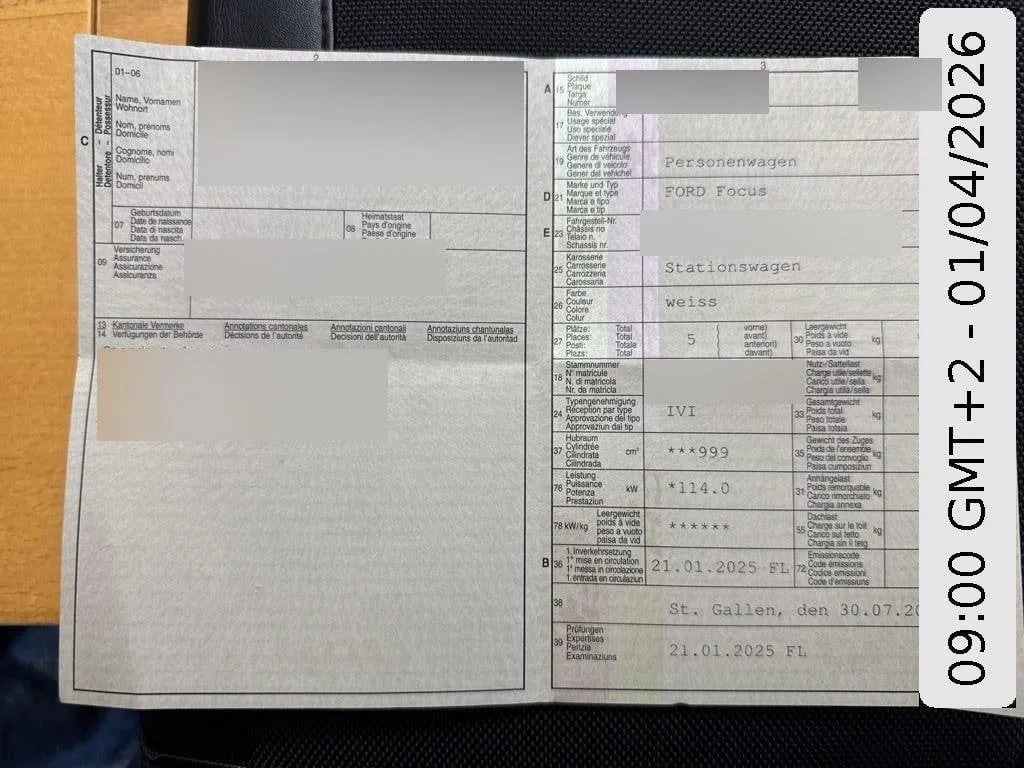 2
01–06
Halter – Détenteur
Detentore – Possessur
C
Name, Vornamen
Wohnort
Nom, prénoms
Domicile
Cognome, nomi
Domicilio
Num, prenums
Domicil
07
Geburtsdatum
Date de naissance
Data di nascita
Data da nasch.
08
Heimatstaat
Pays d'origine
Paese d'origine
09
Versicherung
Assurance
Assicurazione
Assicuranza
13
14
Kantonale Vermerke
Verfügungen der Behörde
Annotations cantonales
Décisions de l'autorité
Annotazioni cantonali
Decisioni dell'autorità
Annotaziuns chantunalas
Disposiziuns da l'autoritad
3
A 15
Schild
Plaque
Targa
Numer
17
Bes. Verwendung
Usage spécial
Uso speciale
Diever spezial
19
Art des Fahrzeugs
Genre de véhicule
Genere di veicolo
Gener dal vehichel
Personenwagen
D 21
Marke und Typ
Marque et type
Marca e tipo
Marca e tip
FORD Focus
E 23
Fahrgestell-Nr.
Châssis no
Telaio n.
Schassis nr.
25
Karosserie
Carrosserie
Carrozzeria
Carossaria
Stationswagen
26
Farbe
Couleur
Colore
Colur
weiss
27
Plätze: Total
Places: Total
Posti: Totale
Plazs: Total
5
vorne)
avant)
anteriori)
davant)
30
Leergewicht
Poids à vide
Peso a vuoto
Paisa da vid
kg
18
Stammnummer
N° matricule
N. di matricola
Nr. da matricla
Nutz-/Sattellast
Charge utile/sellette
Carico utile/sella
Chargia utila/sella
kg
24
Typengenehmigung
Réception par type
Approvazione del tipo
Approvaziun dal tip
IVI
33
Gesamtgewicht
Poids total
Peso totale
Paisa totala
kg
37
Hubraum
Cylindrée
Cilindrata
Cilindrada
cm³
***999
35
Gewicht des Zuges
Poids de l'ensemble
Peso del convoglio
Paisa cumposiziun
kg
76
Leistung
Puissance
Potenza
Prestaziun
kW
*114.0
31
Anhängelast
Poids remorquable
Carico rimorchiato
Chargia annexa
kg
78 kW/kg
Leergewicht
poids à vide
peso a vuoto
paisa da vid
******
55
Dachlast
Charge sur le toit
Carico sul tetto
Chargia sin il tetg
kg
B 36
1. Inverkehrsetzung
1re mise en circulation
1a messa in circolazione
1. entrada en circulaziun
21.01.2025 FL
72
Emissionscode
Code émissions
Codice emissioni
Code d'emissiuns
38
St. Gallen, den 30.07.20
39
Prüfungen
Expertises
Perizie
Examinaziuns
21.01.2025 FL
09:00 GMT+2 - 01/04/2026